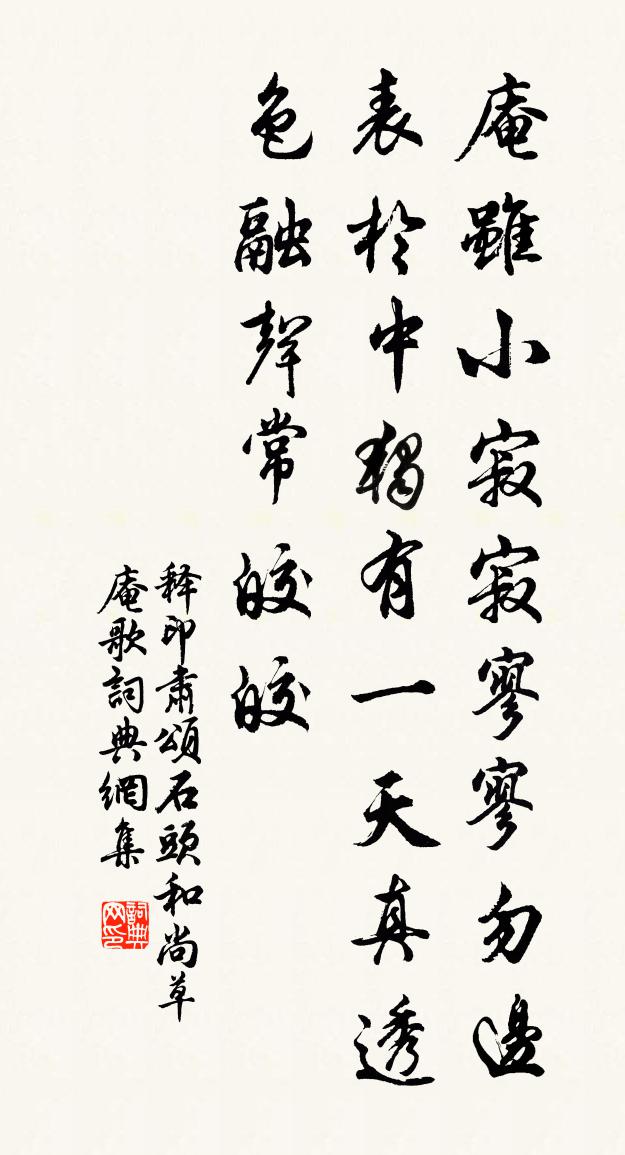 庵雖小寂寂寥寥勿邊
表於中獨有一天真透
色融聲常皎皎
释印肅頌石頭和尚草
庵歌詞典網集
詞典网印